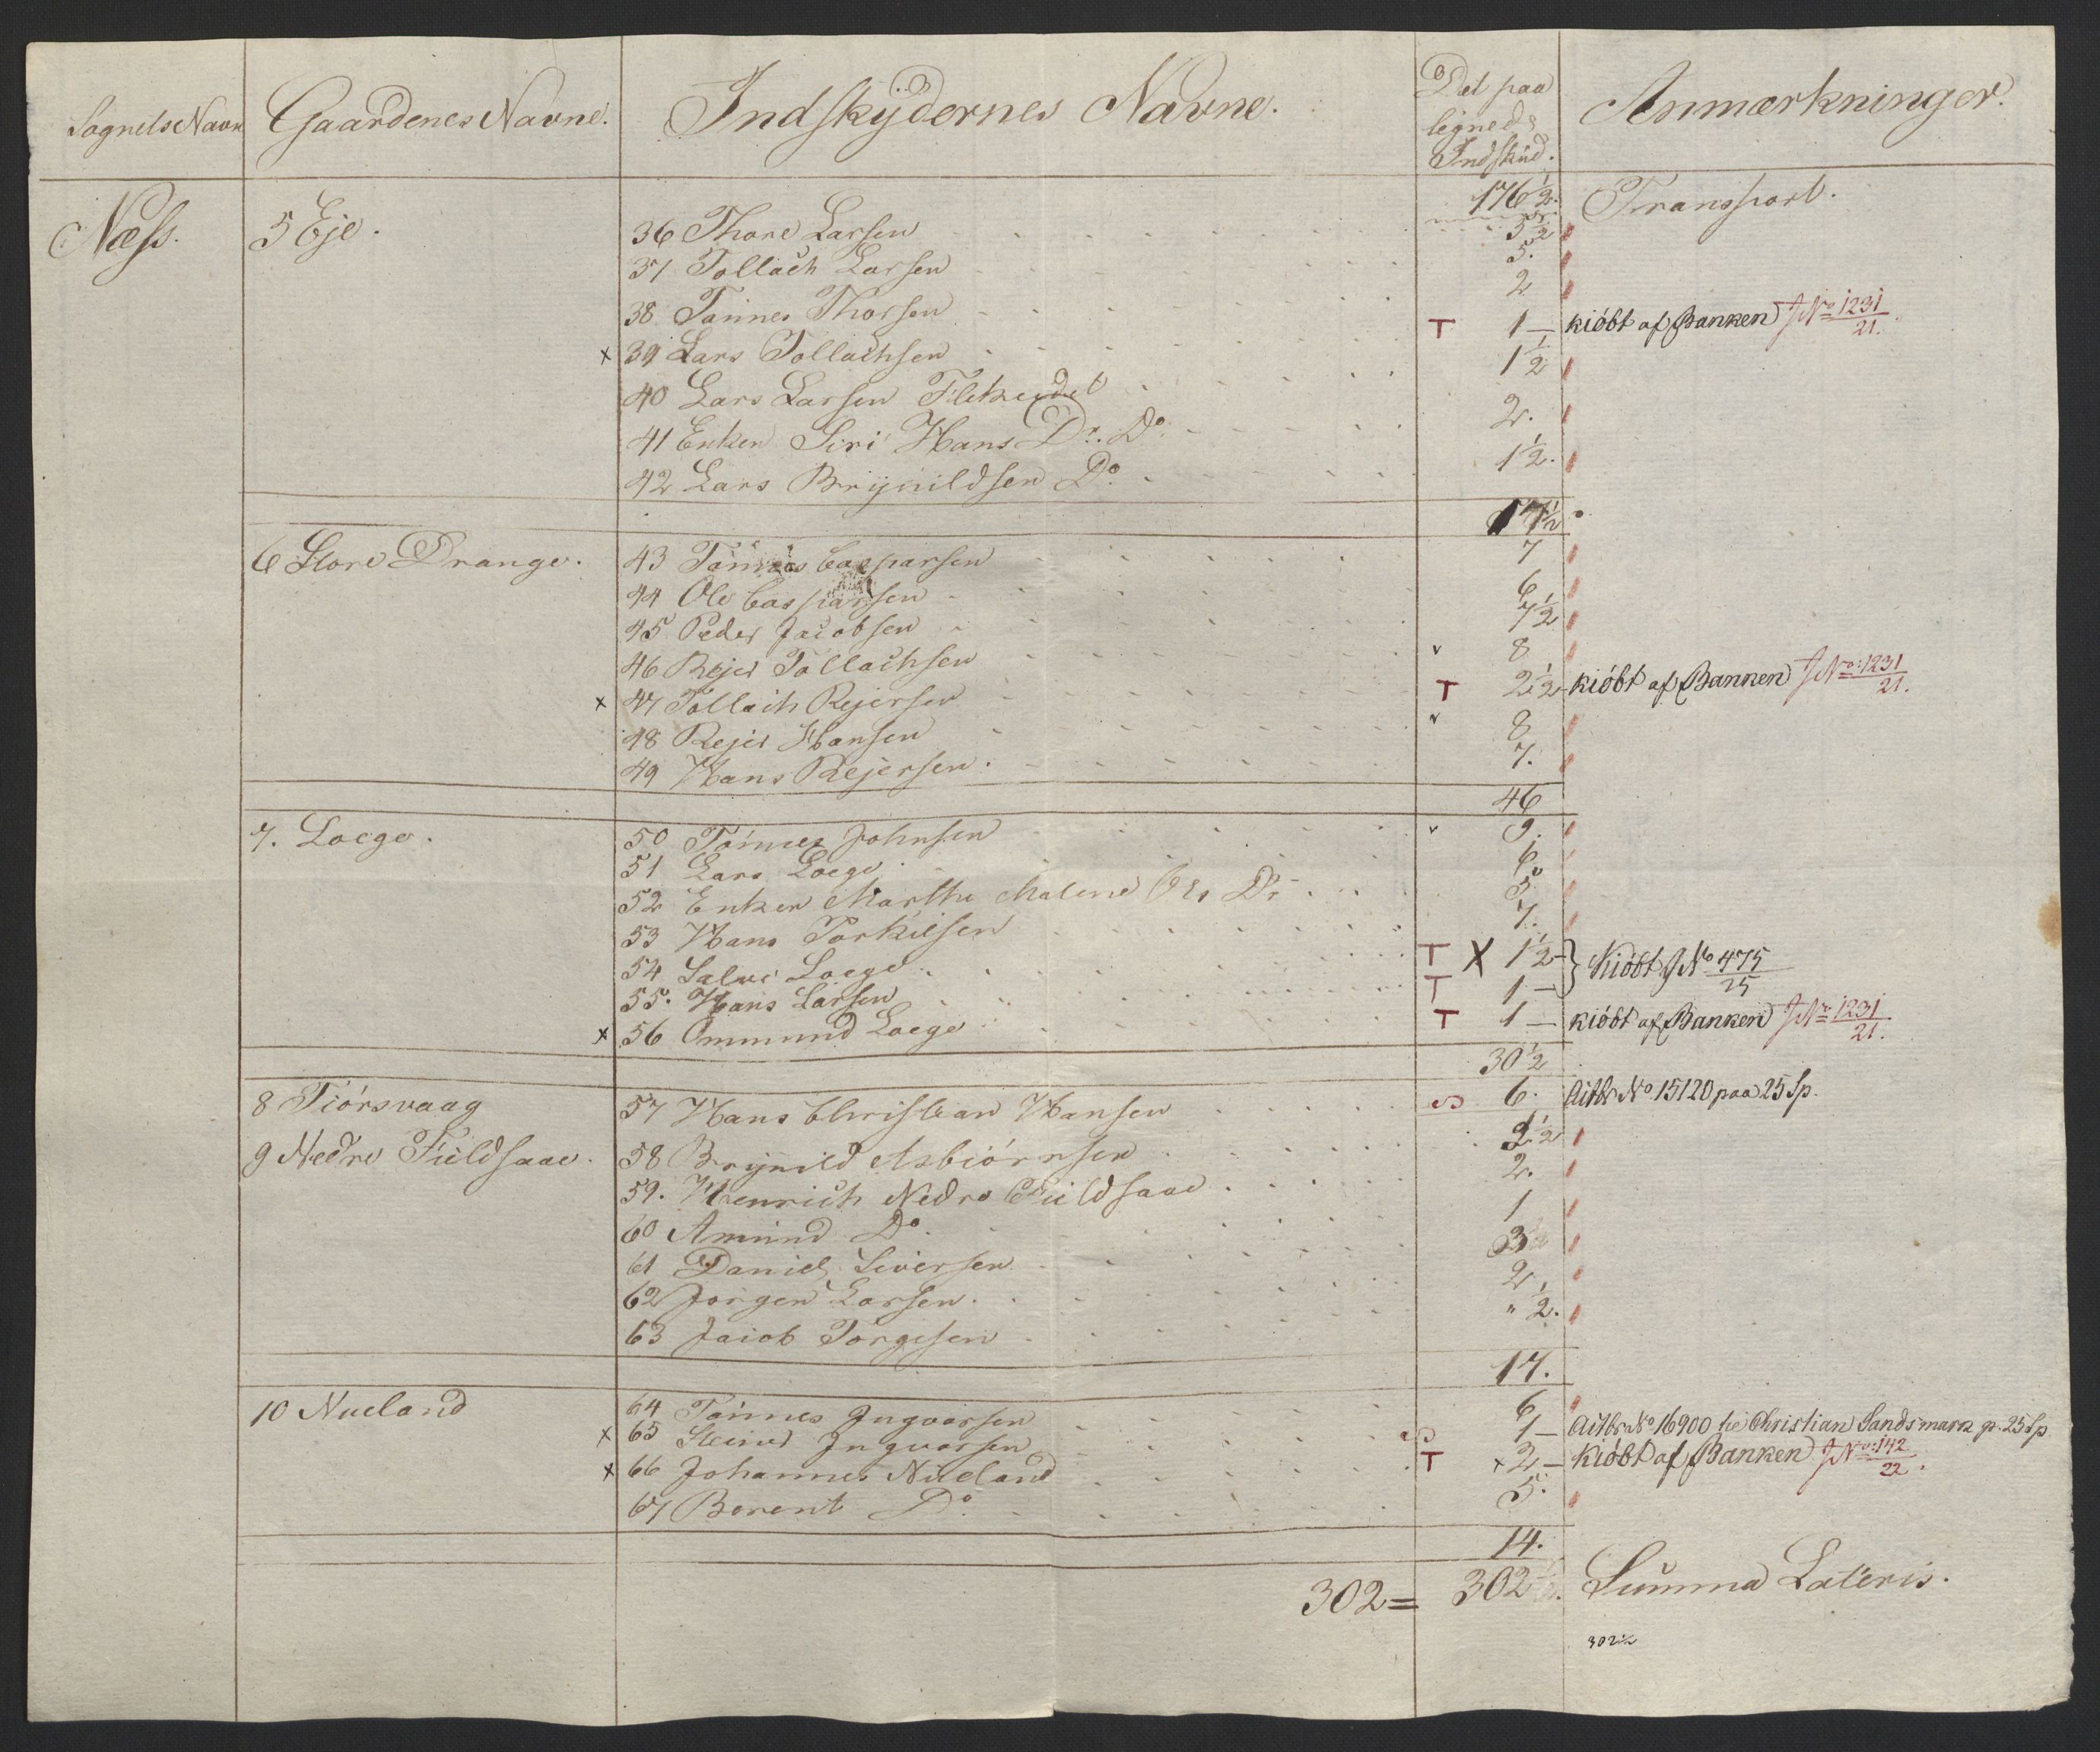 Sognets Navn Gaardenes Navne. Indskÿdernes Navne. Det paa lignede Indskud. Anmærkninger.
176½. Transport.
Næss. 5 Eje. 36 Thore Larsen 3½
37 Tollach Larsen 5.
38 Tønnes Thorsen 2
x 39 Lars Tollachsen T 1 — kiöbt af Banken JNo 1231/21.
40 Lars Larsen 1½
41 Enken Siri Hans Dr. Do. 2.
42 Lars Brÿnildsen Do. 1½.
17½
6 Store Drange. 43 Tönnes Casparsen 7
44 Ole Casparsen 6
45 Peder Jacobsen 7½
46 Rejer Tollachsen v 8
x 47 Tollach Rejersen T 2½ kiöbt af Banken JNo: 1231/21.
48 Rejer Hansen v 8
49 Hans Rejersen. 7.
46
7. Loege. 50 Tönnes Johnsen v 9.
51 Lars Loege 6
52 Enken Marthe Malene Ols Dr. 5
53 Hans Torkilsen 7.
54 Salve Loege T X 1½ } Kiöbt JNo 475/25
55. Hans Larsen T 1 —
x 56 Ommund Loege T 1 — kiöbt af Banken JNo 1231/21.
30½
8 Tiörsvaag 57 Hans Christian Hansen 6. No 15120 paa 25 Sp.
9 Nedre Fieldsaae. 58 Brÿnild Asbiörnsen
59. Henrich Nedre Fieldsaae 2.
60 Amund Do. 1
61 Daniel Siversen 3
62 Jörgen Larsen. 2
63 Jacob Törgesen " ½.
17.
10 Nueland 64 Tönnes Ingvarsen 6
x 65 Ingvarsen 1 — No 16900 Christian Sandsmark 25 Sp
x 66 Johannes Nueland T x 2 — kiöbt af Banken JNo: 142/22.
67 Berent Do. 5.
14.
302 = 302 Summa Lateris.
302½